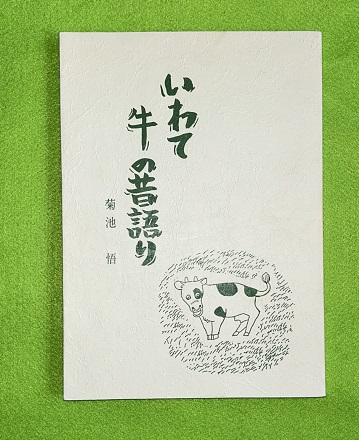 いわて
牛の昔語り
菊池 悟